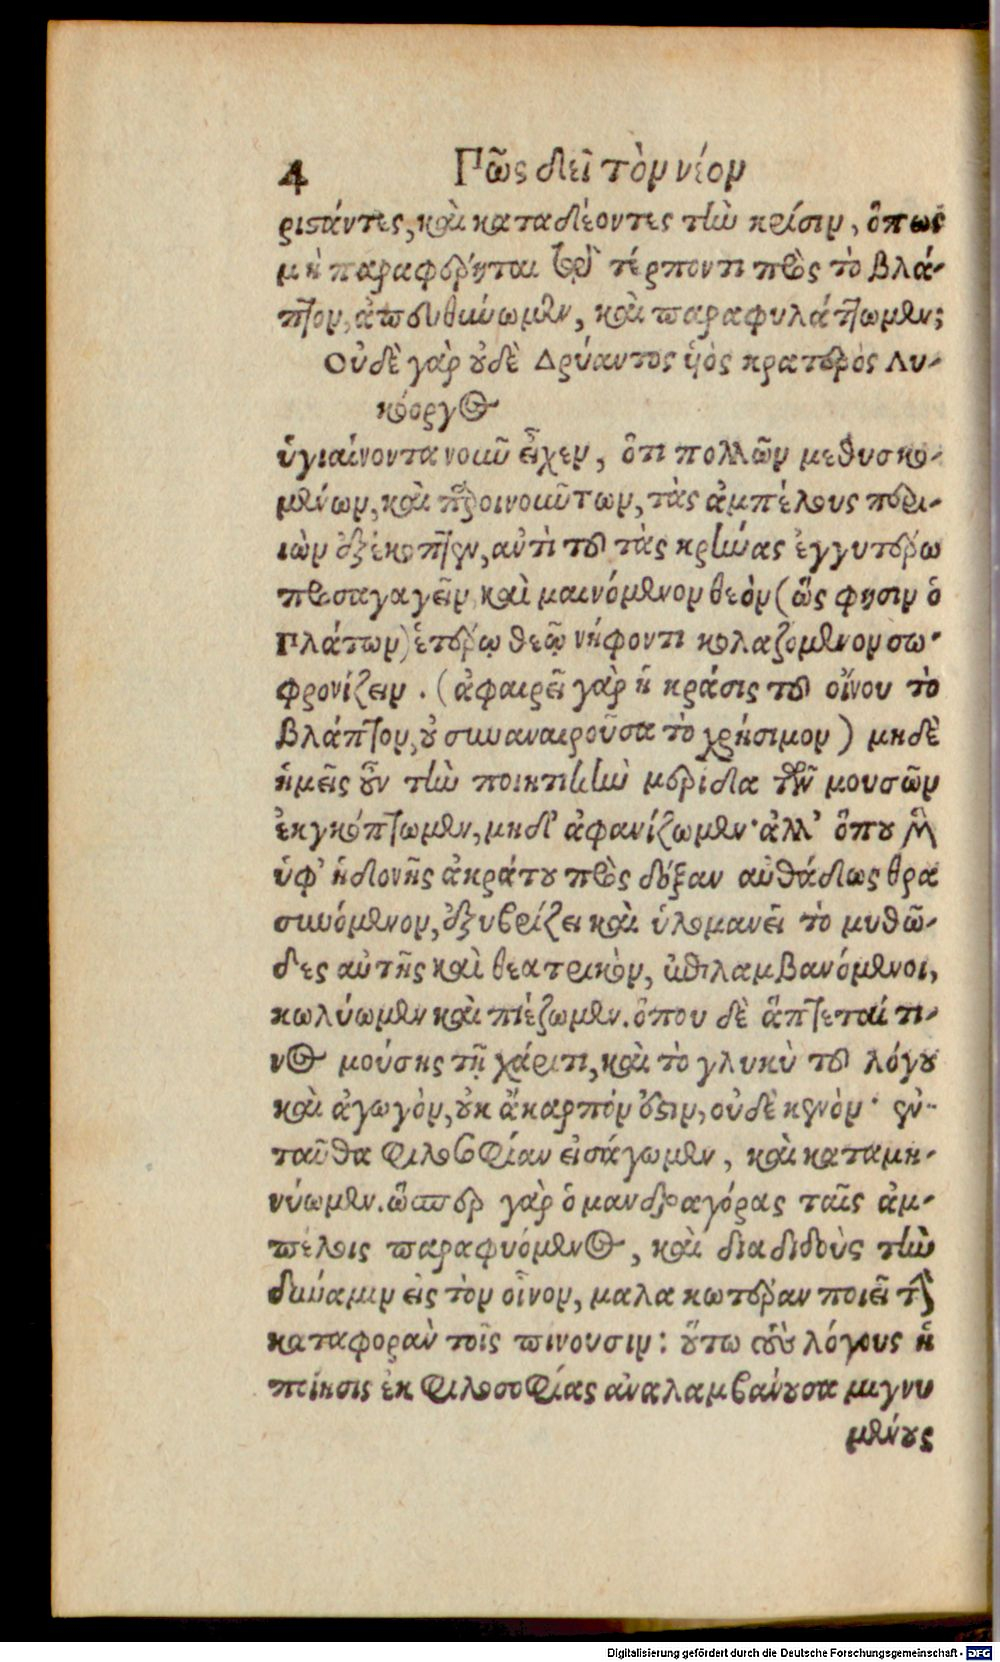 4 Πῶς δεῖ τὸν νέον
ριστάντες, καὶ καταδέοντες τὴν κρίσιν, ὅπως
μὴ παραφέρηται τῷ τέρποντι πρὸς τὸ βλά-
πτον, ἀπευθύνωμεν, καὶ παραφυλάττωμεν;
Οὐδὲ γὰρ οὐδὲ Δρύαντος ὑὸς κρατερὸς Λυ-
κόοργος
ὑγιαίνοντα νοῦν εἶχεν, ὅτι πολλῶν μεθυσκο-
μένων, καὶ παροινούντων, τὰς ἀμπέλους περι-
ιὼν ἐξέκοπτεν, ἀντὶ τοῦ τὰς κρήνας ἐγγυτέρω
προσαγαγεῖν, καὶ μαινόμενον θεὸν (ὥς φησιν ὁ
Πλάτων) ἑτέρῳ θεῷ νήφοντι κολαζόμενον σω-
φρονίζειν. (ἀφαιρεῖ γὰρ ἡ κράσις τοῦ οἴνου τὸ
βλάπτον, οὐ συναναιροῦσα τὸ χρήσιμον) μηδὲ
ἡμεῖς οὖν τὴν ποιητικὴν μερίδα τῶν μουσῶν
ἐκγκόπτωμεν, μηδ' ἀφανίζωμεν· ἀλλ' ὅπου μὲν
ὑφ' ἡδονῆς ἀκράτου πρὸς δόξαν αὐθάδως θρα
συνόμενον, ἐξυβρίζει καὶ ὑλομανεῖ τὸ μυθῶ-
δες αὐτῆς καὶ θεατρικὸν, ἐπιλαμβανόμενοι,
κωλύωμεν καὶ πιέζωμεν. ὅπου δὲ ἅπτεταί τι-
νος μούσης τῇ χάριτι, καὶ τὸ γλυκὺ τοῦ λόγου
καὶ ἀγωγὸν, οὐκ ἄκαρπόν ἐστιν, οὐδὲ κενὸν· ἐν-
ταῦθα φιλοσοφίαν εἰσάγωμεν, καὶ καταμη-
νύωμεν. ὥσπερ γὰρ ὁ μανδραγόρας ταῖς ἀμ-
πέλοις παραφυόμενος, καὶ διαδιδοὺς τὴν
δύναμιν εἰς τὸν οἶνον, μαλακωτέραν ποιεῖ τὴν
καταφορὰν τοῖς πίνουσιν: οὕτω τοὺς λόγους ἡ
ποίησις ἐκ φιλοσοφίας ἀναλαμβάνουσα μιγνυ
μένους
Digitalisierung gefördert durch die Deutsche Forschungsgemeinschaft - DFG